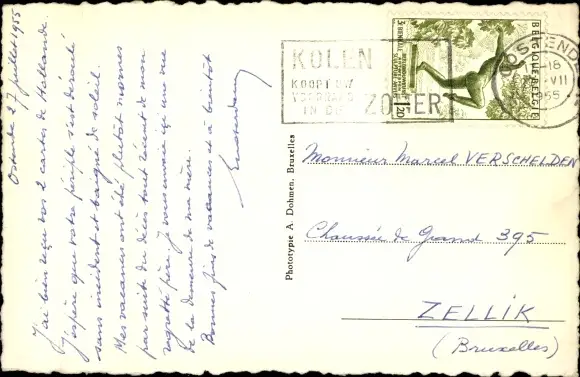 Ostende 27 juillet 1955
J'ai bien reçu vos 2 cartes de Hollande.
J'espère que votre périple s'est déroulé
sans incident et baigné de soleil.
Mes vacances ont été plutôt mornes
par suite du décès tout récent de mon
regretté père. Je vous envoie ici une vue
de la demeure de ma mère.
Bonnes fins de vacances et à bientôt
Phototypie A. Dohmen, Bruxelles
KOLEN
KOOPT UW
IN DE
ZOMER
BELGIQUE-BELGIE
1,20
OOSTENDE
18
VII
55
Monsieur Marcel VERSCHELDEN
Chaussée de Grand 395
ZELLIK
(Bruxelles)